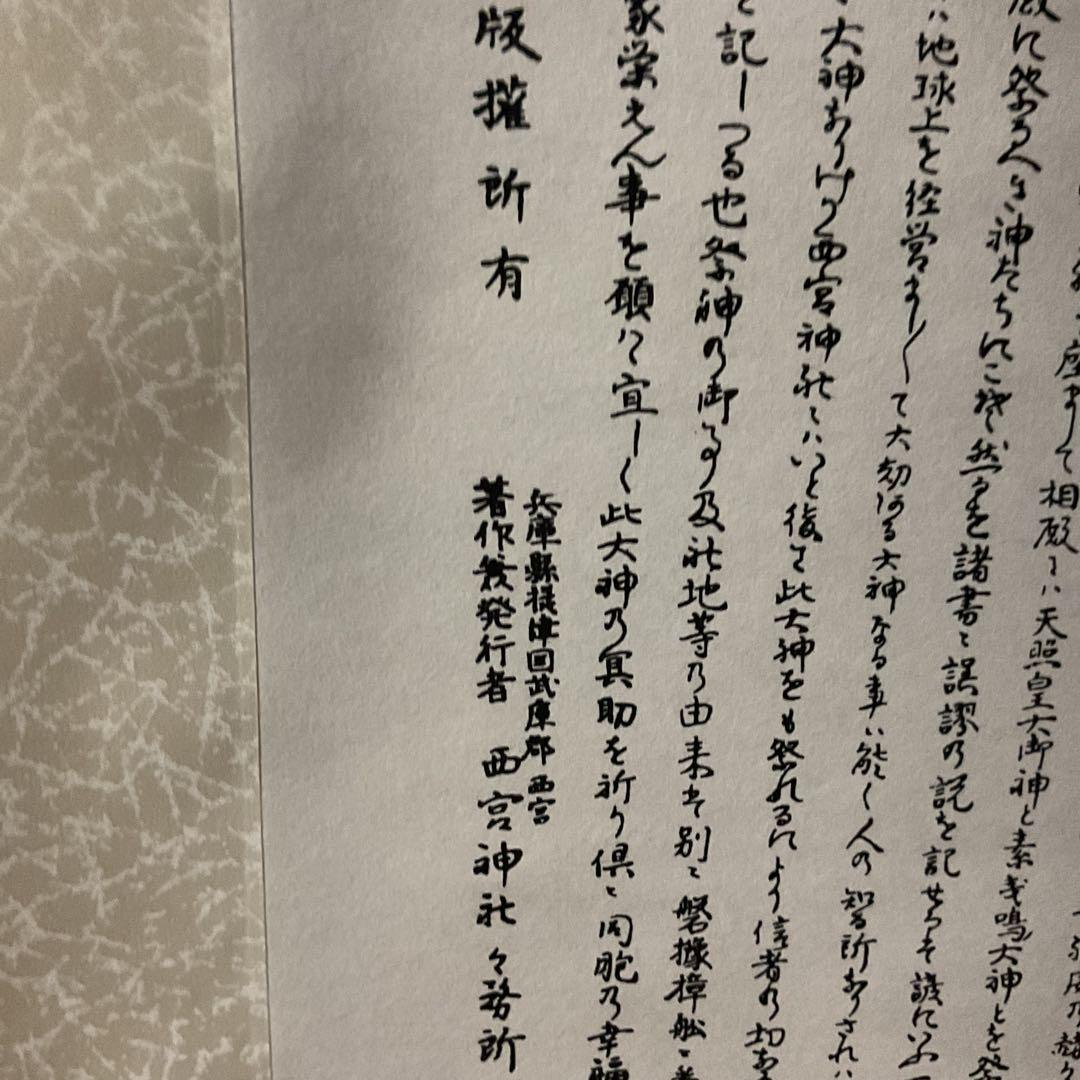 座まして相殿には天照皇大御神と素戔嗚大神とを祭
殿に祭るへき神たちにこそ然るを諸書に誤謬の説を記せるそ
は地球上を経営まし〳〵て大勲ある大神なる事は能く人の智る所
大神
西宮神社とはいと後に此大神をも祭れるにより信者の
記しつる也祭神の御事及社地等の由来は別に磐㯍樟船に
家栄えん事を願は宜しく此大神の冥助を祈り倶に同胞の幸福
兵庫縣摂津国武庫郡西宮
版権所有
著作兼発行者 西宮神社々務所